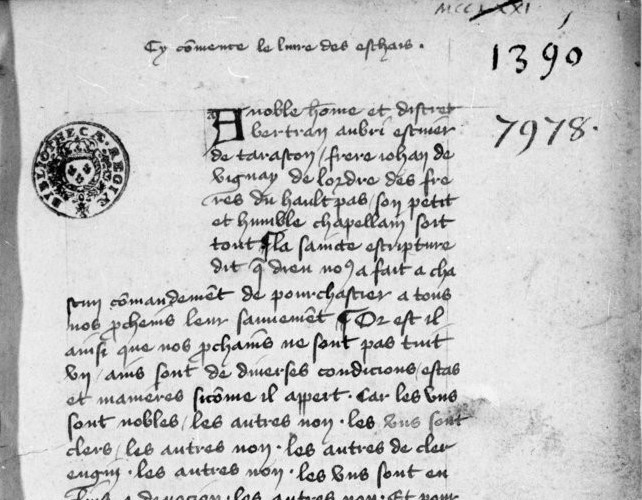 MCCLXXI
Cy cōmence le liure des eschais .
1390
7978.
BIBLIOTHECÆ REGIÆ
A noble hōme et discret
bertran aubri escuier
de tarascon / frere iohan de
vignay de lordre des fre
res du hault pas / son petit
et humble chapellain soit
tout ¶ la saincte escripture
dit q̄ dieu noꝰ a fait a cha
scun cōmandemēt de pourchassier a tous
nos ꝓchains leur sauuemēt ¶ Or est il
ainsi que nos ꝓchains ne sont pas tuit
vn / ains sont de diuerses condicions / estas
et manieres sicōme il appert . Car les vns
sont nobles / les autres non . les vns sont
clers / les autres non . les autres de cler
engin . les autres non . les vns sont en
deuocion . les autres non . Et pour